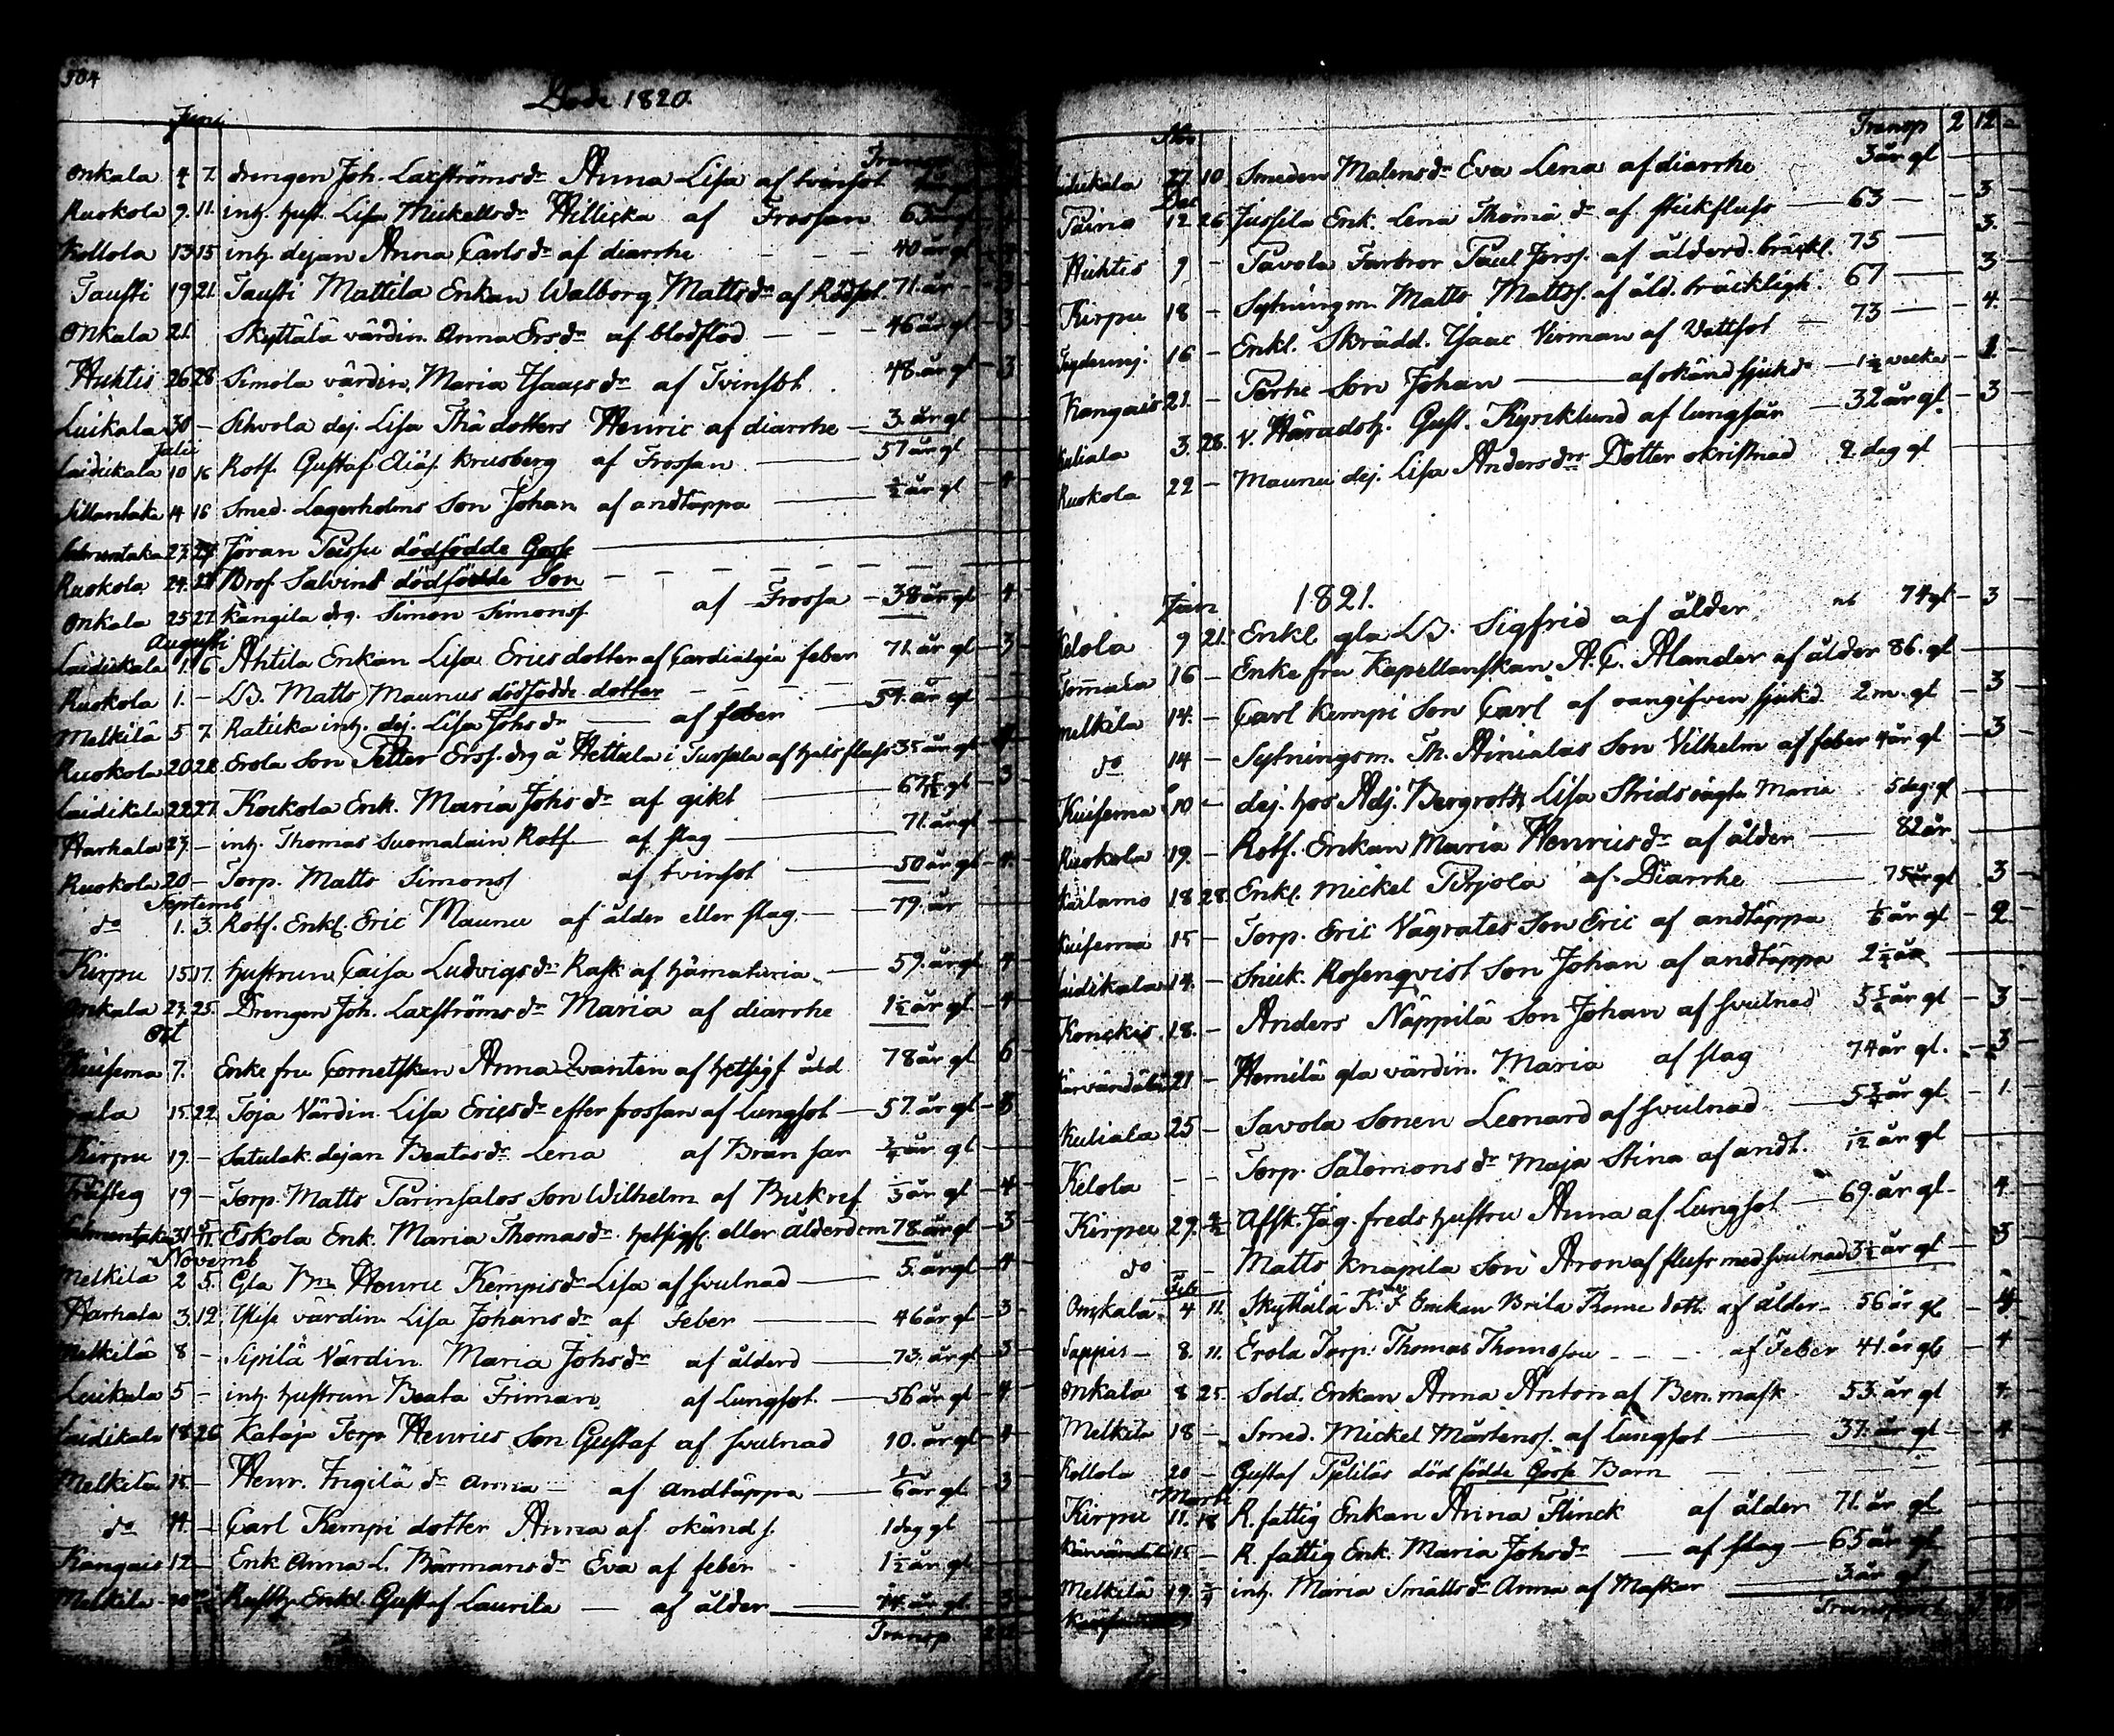 504
Döde 1820.
Juni
Transp
Onkala 4 7. drengen Joh. Laxströmsdr Anna Lisa af tvinsot
Ruokola 9. 11. inh. hust. Lisa Mickelsdr Hillicka af Frossan 63 år gl
Kollola 13 15 inh. dejan Anna Carlsdr af diarrhe — 40 år gl
Tausti 19 21. Tausti Mattila Enkan Walborg Mattsdr af Rödsot. 71. år — 3
Onkala 21. Skyttälä värdin. Anna Ersdr af blodflod — 46 år gl — 3
Huhtis 26 28 Simola värdin, Maria Isaacsdr af Tvinsot. 48. år gl — 3
Luikala 30 — dej. Lisa Thä dotters Henric af diarrhe — 3. år gl
Julii
Laidikala 10 16 Rotf. Gustaf Eliæs. Krusberg af Frossan — 57 år gl
14 16 Smed. Lagerholms Son Johan af andtäppa — ½ år gl
27. Jöran dödfödde Gosse
Ruokola 24. Salvins dödfödde Son
Onkala 25 27. Kangila drg. Simon Simonss. af Frossa — 38 år gl 4
Augusti
Laidikala 1. 6 Ahtila Enkan Lisa Ericsdotter af Cardialgia feber 71. år gl — 3
Ruokola 1. — LB. Matts Maunus dödfödde dotter
Melkilä 5 7. Ratuka inh. dej. Lisa Johsdr — af feber — 54. år gl
Ruokola 20 28 Erola Son Petter Erss. drg å Hettula i Tursala af halsfluss 35 år gl
Laidikala 22 27. Kockola Enk. Maria Johsdr af gikt — 67 gl — 3
Harhala 27. — inh. Thomas Suomalain Rotf. — af slag — 71. år gl
Ruokola 20 — Torp. Matts Simonss af tvinsot — 50 år gl — 4.
Septemb
do 1. 3. Rotf. Enkl. Eric Maunu af ålder eller slag. — 79. år
Kirpu 15 17. hustrun Caisa Ludvigsdr Rask af hämaturia — 59. år gl 4
Onkala 23. 25. Drengen Joh. Laxströmsdr Maria af diarrhe 1½ år gl — 4
Oct
Kuisema 7. Enkefru Cornetskan Anna Qvanten af hetsigf. åld 78 år gl 6
15. 22. Toja Värdin. Lisa Ericsdr efter frossan af Lungsot — 57. år gl
Kirpu 19. — dejan Beatasdr Lena af Bränsår ¾ år gl
19 — Torp. Matts Parinsalos Son Wilhelm af Bukref ⅓ år gl — 4
31 Eskola Enk. Maria Thomasdr hetsigf. eller ålderdom 78. år gl — 3
Novemb
Melkilä 2 5. Gla Henric Kempisdr Lisa af svulnad — 5. år gl — 4
Harhala 3. 12 värdin Lisa Johansdr af Feber — 46 år gl — 3
Melkilä 8 — Sipilä Värdin. Maria Johsdr af ålderd — 73. år gl — 3
Luikala 5 — inh. hustrun Beata Friman af Lungsot. — 56 år gl — 4
Laidikala 18 26 Kataja Torp Henrics Son Gustaf af svulnad 10. år gl — 4
Melkilä 15 — Henr. Frigilä dr Anna — af andtäppa — ⅙ år gl. — 3
do 14. — Carl Kempi dotter Anna af okänd s. 1 dag gl
Kangais 12 — Enk. Anna L. Bärmansdr Eva af feber 1½ år gl
Melkilä 20 Rusth. Enkl. Gustaf Laurila — af ålder — 74. år gl. 3
Transp.
Nov Transp 2 12
Laidikala 27 10 Smeden Malensdr Eva Lena af diarrhe 3 år gl
Dec
Pairis 12 26 Jussila Enk. Lena Thomædr af stickfluss — 63 — 3
Huhtis 9 — Pavola Farbror Paul Jörss. af ålderd. bräckl. 75 — 3.
Kirpu 18 — Sytningsm. Matts Mattss. af åld. bräckligh. 67 — 3
16 — Enkl. Skrädd. Isaac Virman af Vattsot — 73 — 4.
Kangais 21. — Perhe Son Johan — af okänd sjukd. — 1½ vecka — 1.
Kuliala 3. 28. v. Häradsh. Gust. Kyrcklund af lungsår — 32 år gl. — 3
Ruokola 22 — Maunu dej. Lisa Andersdrs Dotter okristnad 2 dag gl
1821.
Jan
Kelola 9 21. Enkl gla LB. Sigfrid af ålder 74 gl — 3
Tommala 16 — Enkefru Kapellanskan A. C. Alander af ålder 86. gl
Melkilä 14. — Carl Kempi Son Carl af oangifven sjukd. 2 m. gl — 3
do 14 — Sytningsm. Th. Ainialas Son Vilhelm af feber 4 år gl — 3
Kuisema 10 — dej. hos Adj. Bergroth Lisa Strids oägta Maria 5 dag. gl
Ruokola 19. — Rotf. Enkan Maria Henricsdr af ålder — 82 år
18. 28. Enkl. Mickel Perjola af Diarrhe — 75 år gl 3
Kuisema 15 — Torp. Eric Vägrates Son Eric af andtäppa ⅙ år gl — 2
Laidikala 14. — Snick. Rosenqvist Son Johan af andtäppa 2 år
18. — Anders Näppilä Son Johan af svulnad år gl — 3
21 — Hemilä gla värdin. Maria af slag 74 år gl. — 3
Kuliala 25 — Savola Sonen Leonard af svulnad — 5¾ år gl. — 1.
Kelola — — Torp. Salomonsdr Maja Stina af andt. 1/12 år gl
Kirpu 29. Afsk. Jäg. Freds hustru Anna af Lungsot — 69. år gl. — 4
do — — Matts Knapila Son Aron af fluss med svulnad 3½ år gl — 3
Feb
Onkala 4 11. Skyttälä Enkan Brita Thome dott. af ålder — 56 år gl
Sappis — 8. 11. Erola Torp. Thomas Thomsson af Feber 41. år gl — 4
Onkala 8 25. Sold. Enkan Anna Anton af Ben. mask 53. år gl 4.
Melkilä 18 — Smed. Mickel Mårtenss. af Lungsot — 37. år gl — 4
Kollola 20 — Gustaf dödfödde Gosse Barn
Martii
Kirpu 11. 18 R. fattig Enkan Anna Flinck af ålder 71. år gl
15 — R. fattig Enk. Maria Johsdr — af slag — 65 år gl
Melkilä 19. inh. Maria Smältsdr Anna af Maskar — 3 år gl
Transport